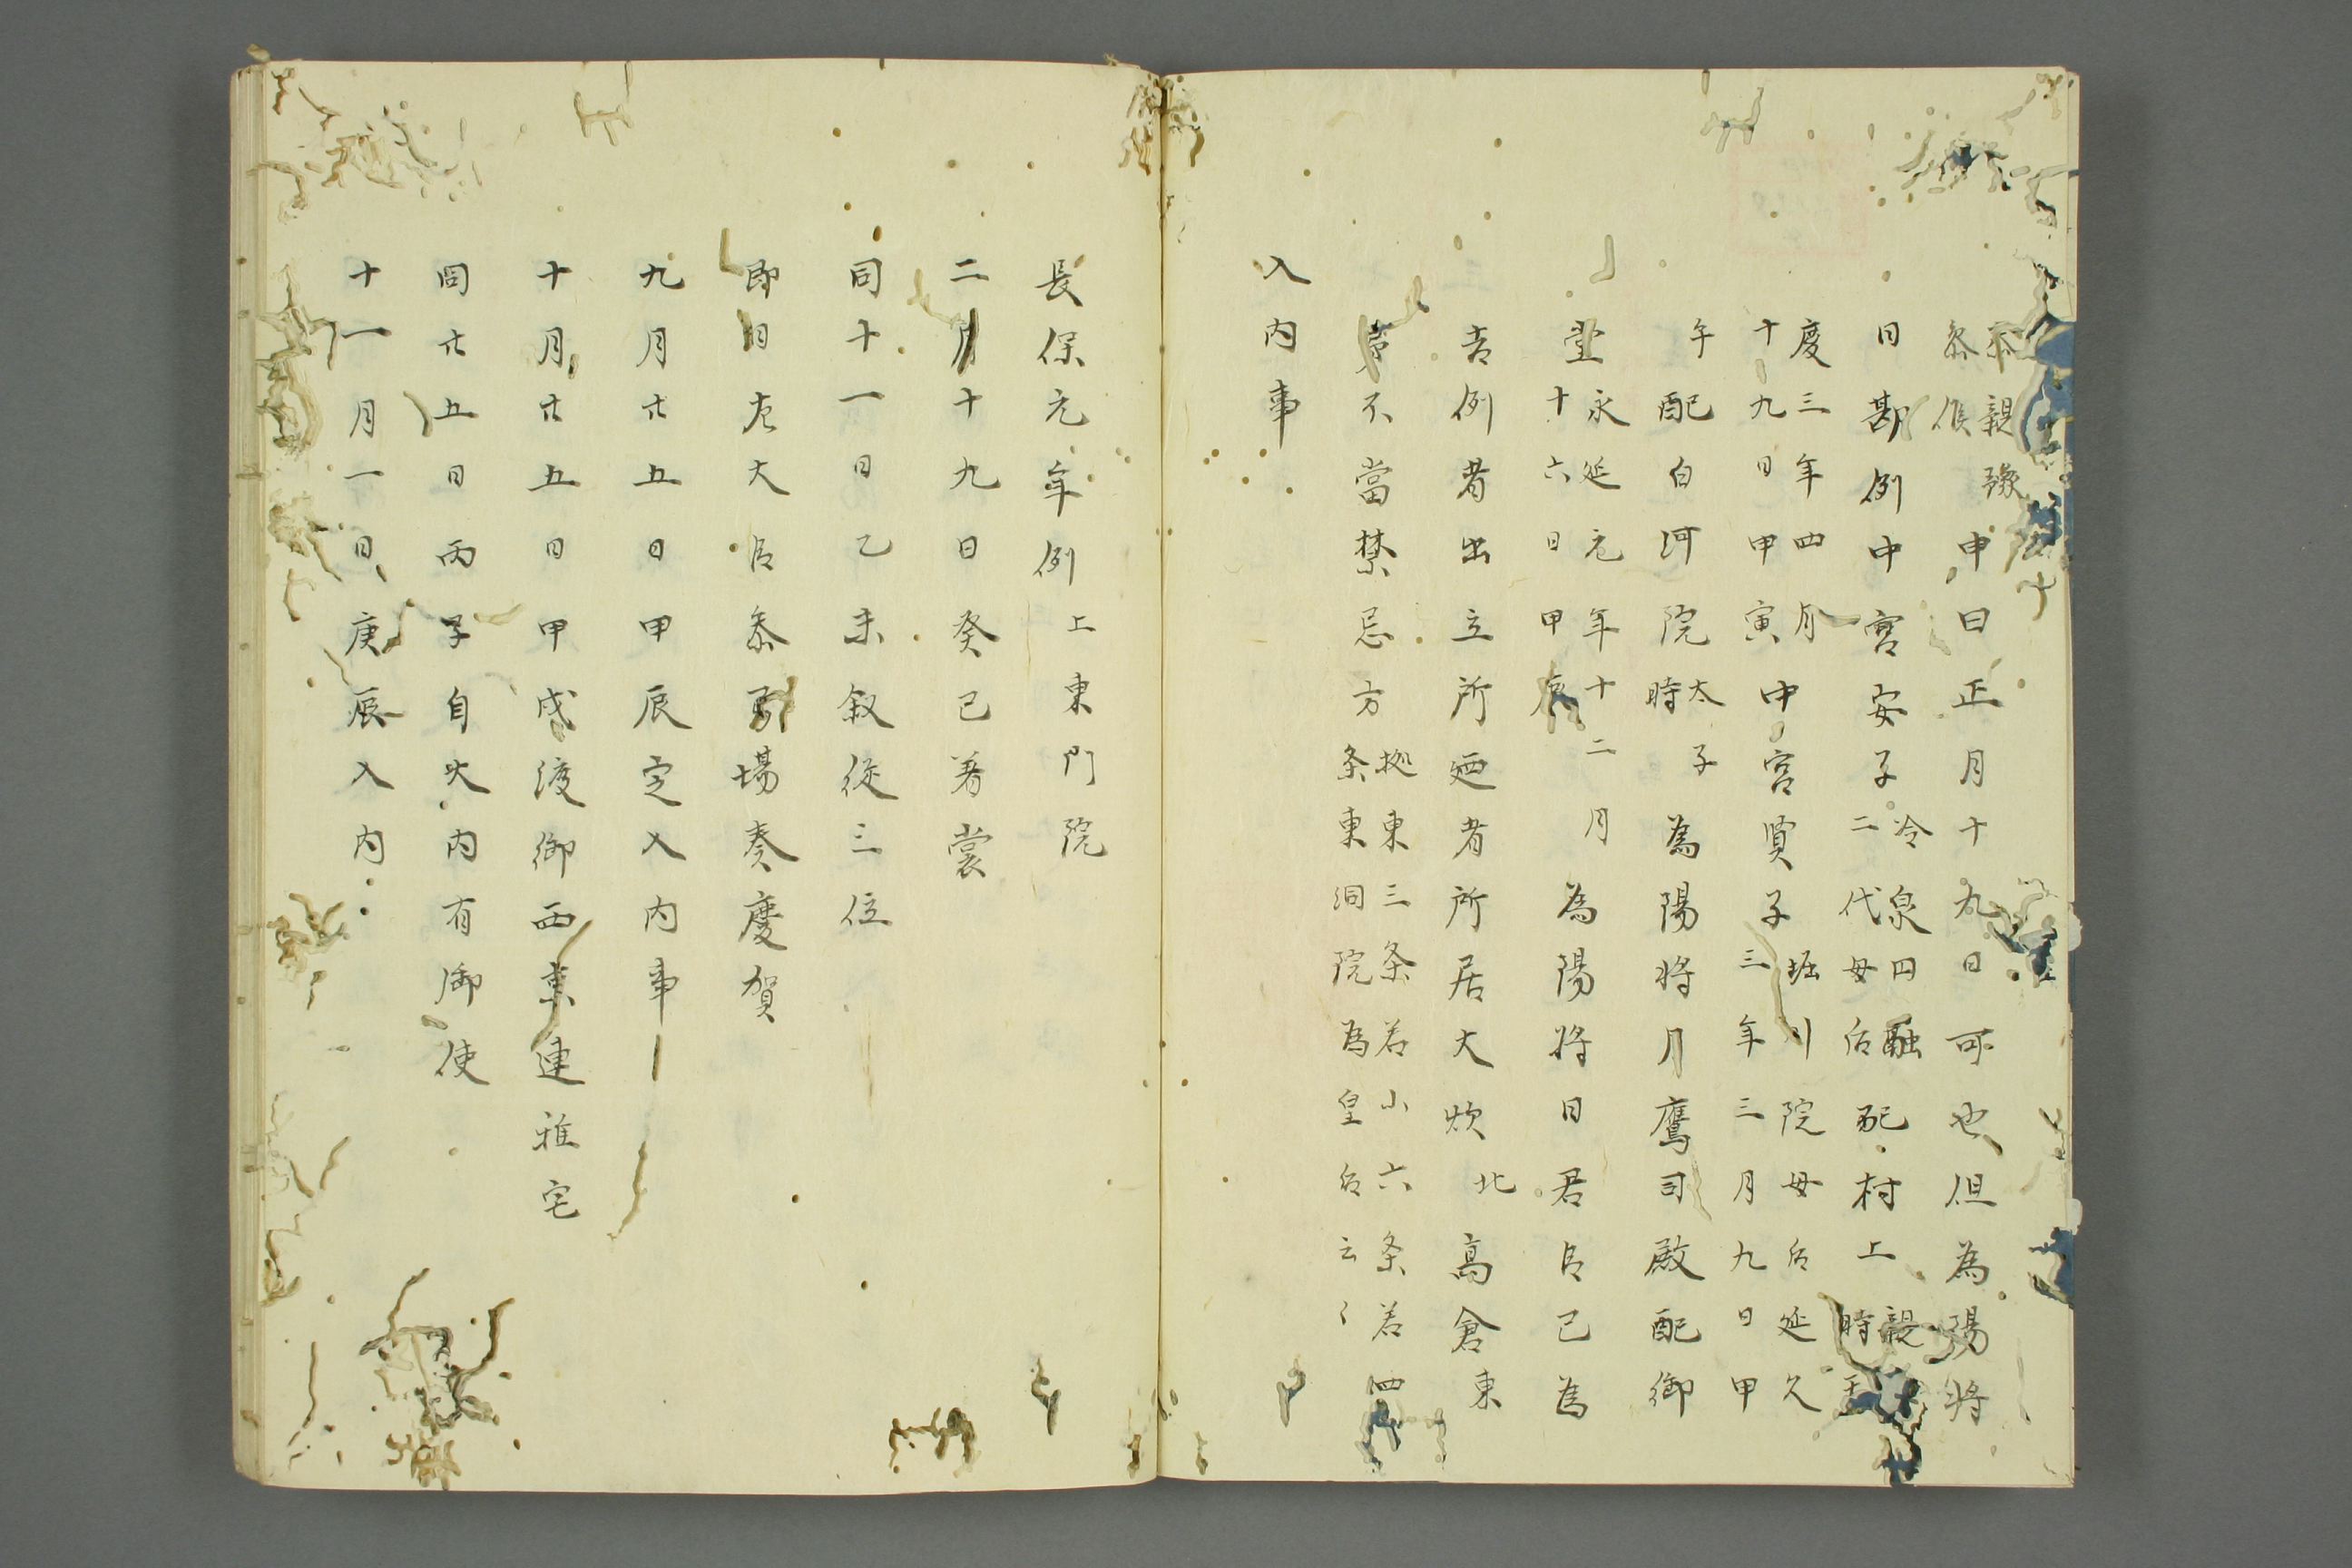 親豫
参候
申曰正月十九日可也但為陽将
日勘例中宮安子
冷泉円融
二代母后
配村上
親王
時
慶三年四月
十九日甲寅
中宮賢子
堀川院母后延久
三年三月九日甲
午
配白河院
太子
時
為陽将月鷹司殿配御
堂
永延元年十二月
十六日甲辰
為陽将日君臣已為
吉例者出立所廻者所居大炊北高倉東
第不当禁忌方
拠東三条若小六条若四
条東洞院為皇后云々
入内事
長保元年例上東門院
二月十九日癸巳著裳
同十一日乙未叙従三位
即日左大臣参弓場奏慶賀
九月廿五日甲辰定入内事
十月廿五日甲戌渡御西京連雅宅
同廿五日丙子自大内有御使
十一月一日庚辰入内